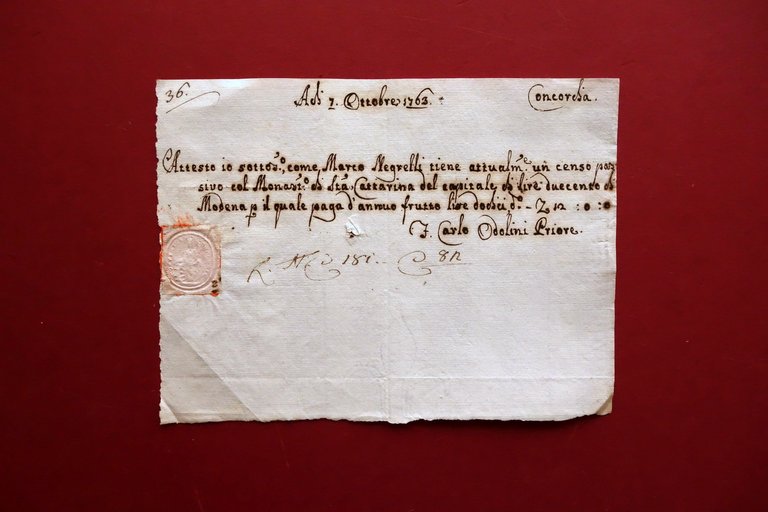 36.
Adi 7. Ottobre 1763. Concordia.
Attesto io sottos.o, come Marco Negrelli tiene attualm.e un censo pas
sivo col Monast.o di Sta. Cattarina del capitale di lire duecento di
Modena p il quale paga d'annuo frutto lire dodici d.o - L 12 : 0 : 0
F. Carlo Odolini Priore.